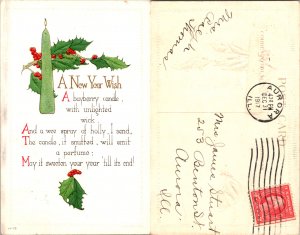 A New Year Wish
A bayberry candle,
with unlighted
wick
And a wee spray of holly I send,
The candle, if snuffed, will emit
a perfume:
May it sweeten your year till its end!
AURORA
DEC 31
ILL.
Mrs James Stuart
253 Benton St
Aurora
Ill